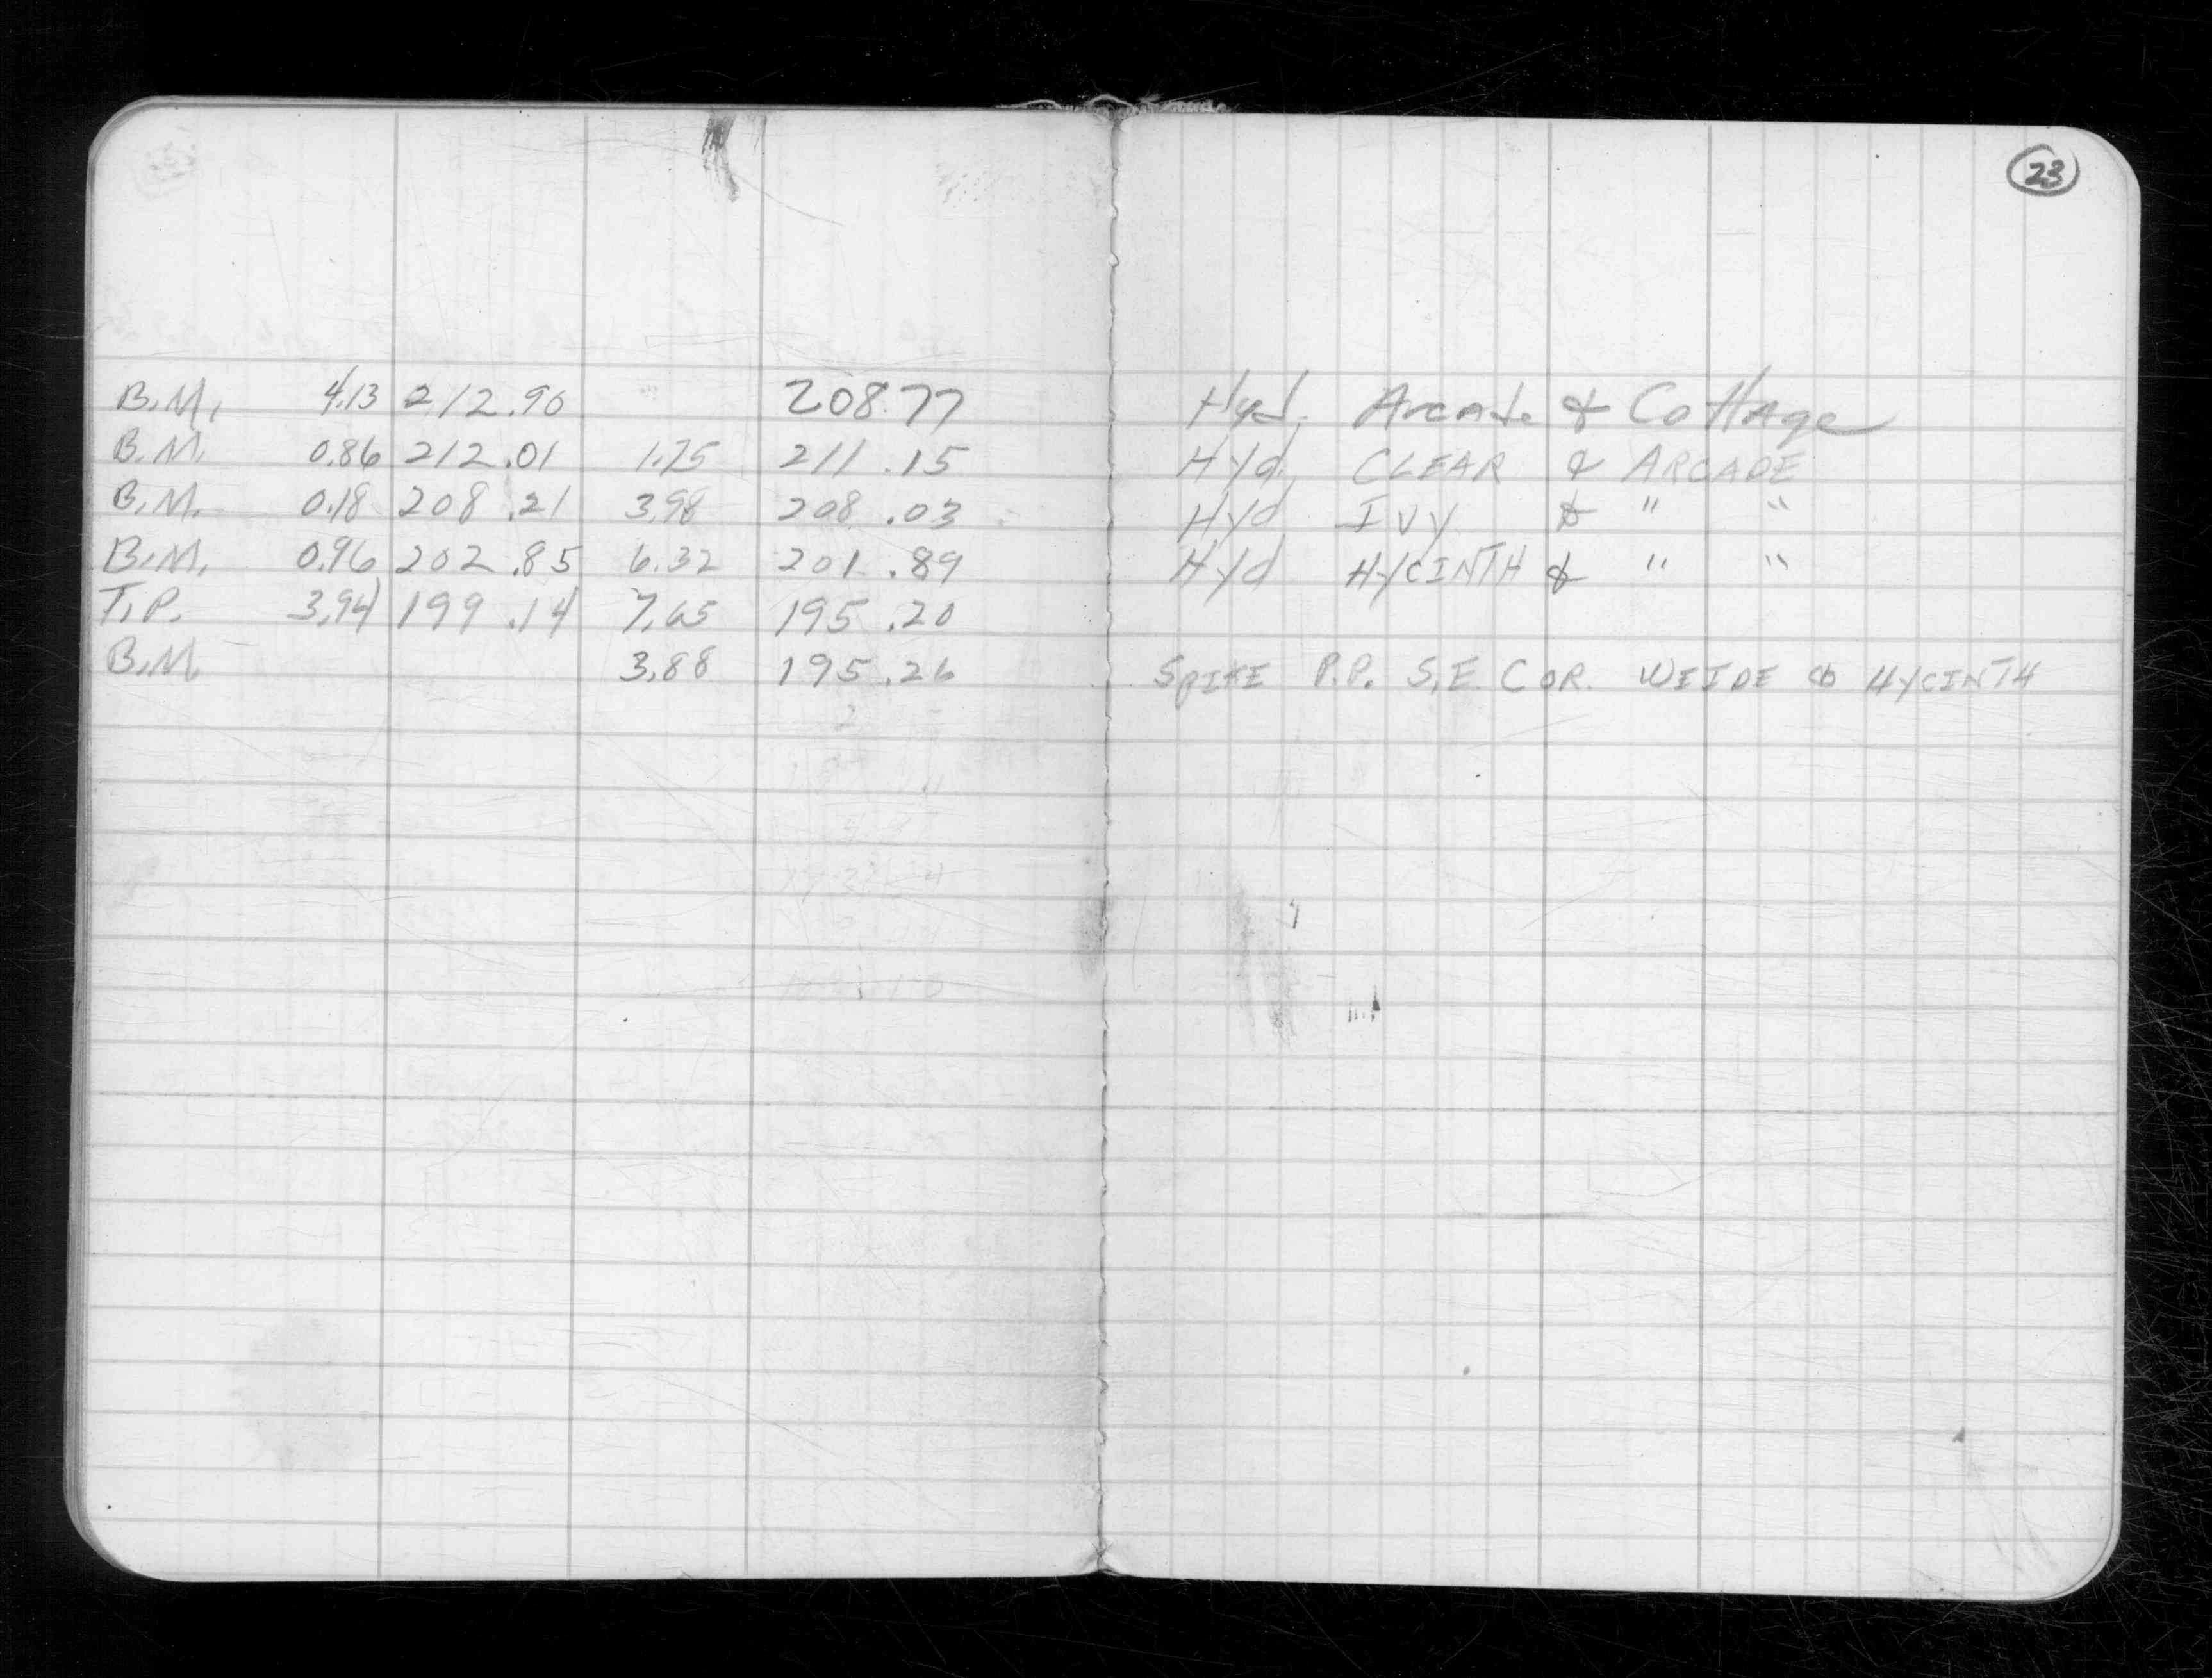 23
B.M. 4.13 212.90 208.77 Hyd. Arcade & Cottage
B.M. 0.86 212.01 1.75 211.15 Hyd. CLEAR & ARCADE
B.M. 0.18 208.21 3.98 208.03 Hyd IVY & " "
B.M. 0.96 202.85 6.32 201.89 Hyd HYCINTH & " "
T.P. 3.94 199.14 7.65 195.20
B.M. 3.88 195.26 SPIKE P.P. S.E. COR. WEIDE & HYCINTH